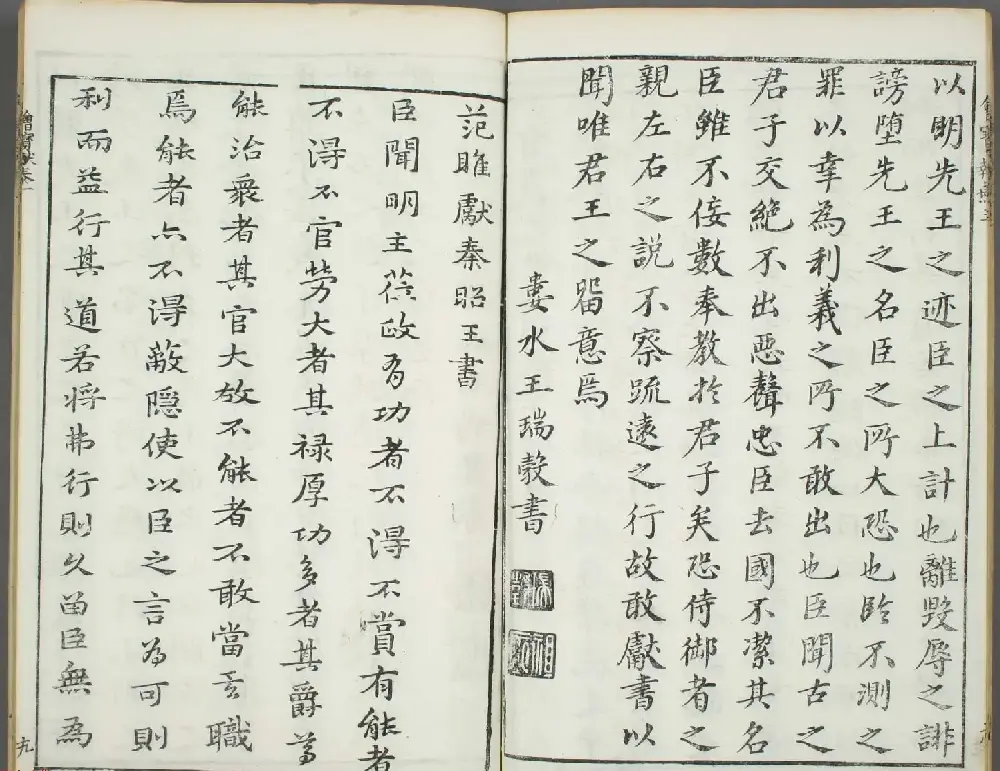 以明先王之迹臣之上計也離毀辱之誹
謗堕先王之名臣之所大恐也臨不測之
罪以幸為利義之所不敢出也臣聞古之
君子交絶不出惡聲忠臣去國不潔其名
臣雖不佞數奉教於君子矣恐侍御者之
親左右之説不察疏遠之行故敢獻書以
聞唯君王之畱意焉
婁水王瑞穀書
范雎獻秦昭王書
臣聞明主蒞政有功者不得不賞有能者
不得不官勞大者其禄厚功多者其爵尊
能治衆者其官大故不能者不敢當其職
焉能者亦不得蔽隠使以臣之言為可則
利而益行其道若将弗行則久留臣無為
九